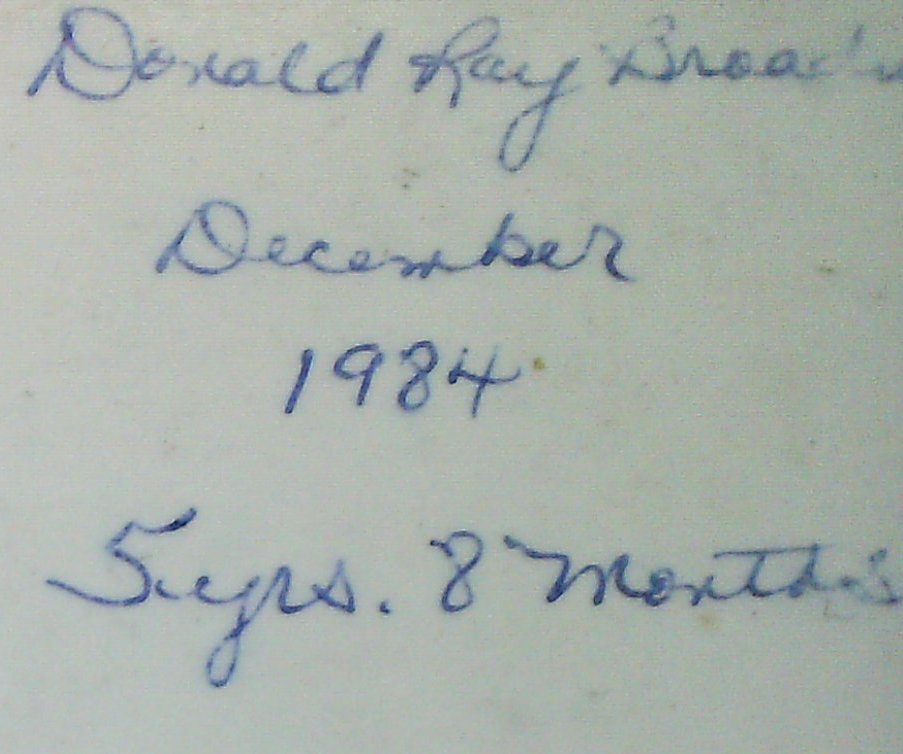 Donald Ray
December
1984
5 yrs. 8 Months